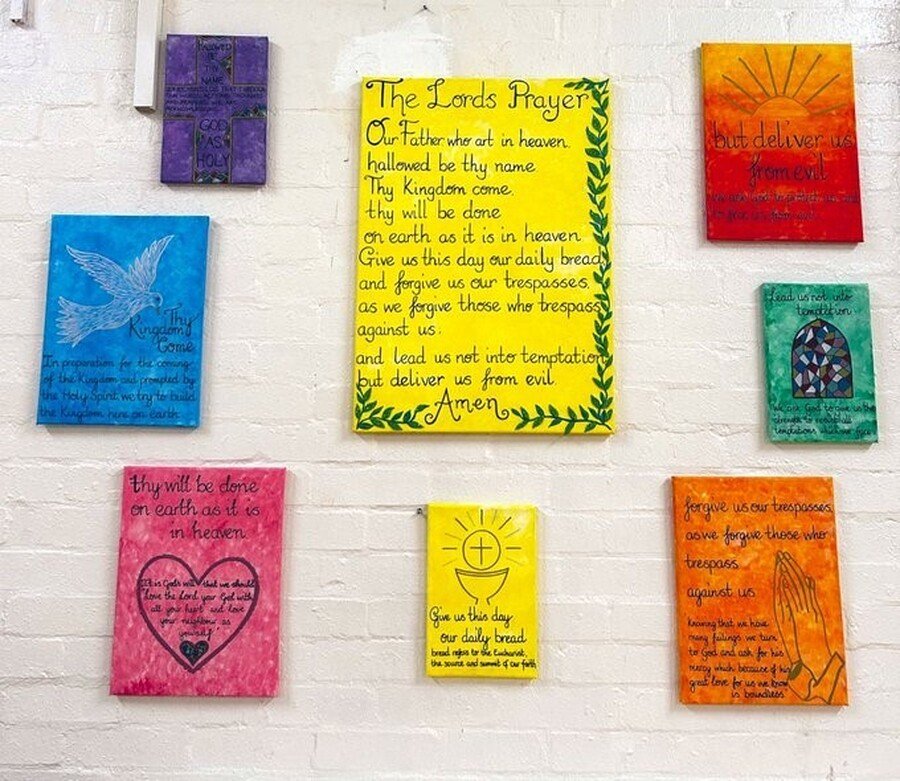 HALLOWED
BE
THY
NAME
GOD
AS
HOLY
The Lords Prayer
Our Father who art in heaven.
hallowed be thy name
Thy Kingdom come,
thy will be done
on earth as it is in heaven
Give us this day our daily bread
and forgive us our trespasses
as we forgive those who trespass
against us:
and lead us not into temptation
but deliver us from evil.
Amen
but deliver us
from evil
we ask God to protect us and
to free us from evil.
Thy
Kingdom
Come
In preparation for the coming
of the Kingdom and prompted by
the Holy Spirit we try to build
the Kingdom here on earth
Lead us not into
temptation
We ask God to give us the
strength to resist all
temptations which we face
thy will be done
on earth as it is
in heaven
It is God's will that we should
Love the Lord your God with
all your heart and love
your neighbour as
yourself
Give us this day
our daily bread
bread refers to the Eucharist,
the source and summit of our faith
forgive us our trespasses,
as we forgive those who
trespass
against us
knowing that we have
many failings we turn
to God and ask for his
mercy which because of his
great love for us we know
is boundless"